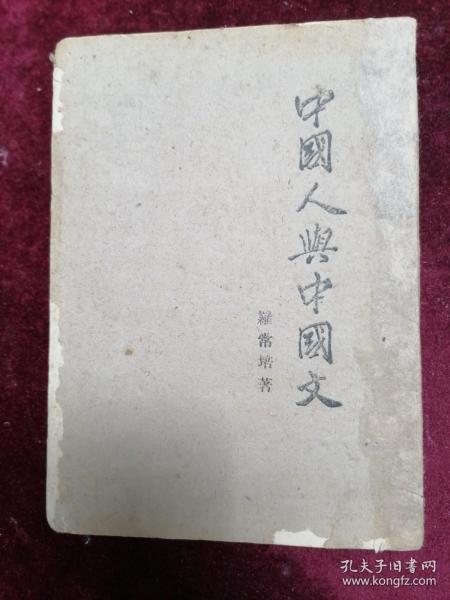 中國人與中國文
羅常培著
孔夫子旧书网
www.kongfz.com